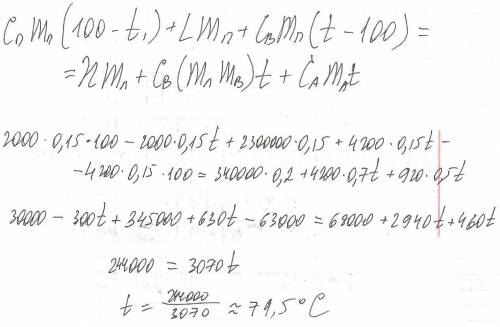 Cп mп (100 - t₁) + L mп + Cв mп (t - 100) =
= λ mл + Cв (mл mв) t + Cа mа t
2000 · 0,15 · 100 - 2000 · 0,15t + 2300000 · 0,15 + 4200 · 0,15t -
- 4200 · 0,15 · 100 = 340000 · 0,2 + 4200 · 0,7t + 920 · 0,5t
30000 - 300t + 345000 + 630t - 63000 = 68000 + 2940t + 460t
244000 = 3070t
t = 244000/3070 ≈ 79,5°C